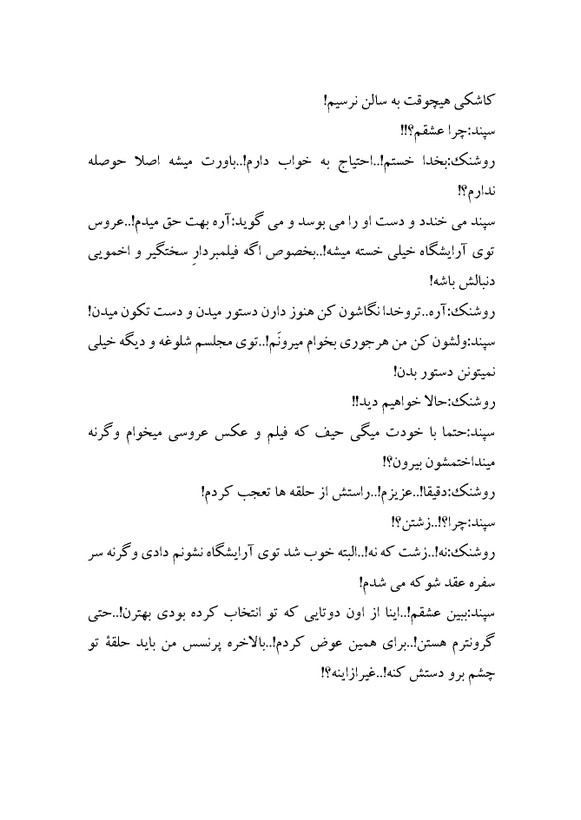 کاشکی هیچوقت به سالن نرسیم!
سپند:چرا عشقم؟!!
روشنک:بخدا خستم!..احتیاج به خواب دارم!..باورت میشه اصلا حوصله
ندارم؟!
سپند می خندد و دست او را می بوسد و می گوید:آره بهت حق میدم!..عروس
توی آرایشگاه خیلی خسته میشه!..بخصوص اگه فیلمبردارِ سختگیر و اخمویی
دنبالش باشه!
روشنک:آره..تروخدا نگاشون کن هنوز دارن دستور میدن و دست تکون میدن!
سپند:ولشون کن من هرجوری بخوام میرونَم!..توی مجلسم شلوغه و دیگه خیلی
نمیتونن دستور بدن!
روشنک:حالا خواهیم دید!!
سپند:حتما با خودت میگی حیف که فیلم و عکس عروسی میخوام وگرنه
مینداختمشون بیرون؟!
روشنک:دقیقا!..عزیزم!..راستش از حلقه ها تعجب کردم!
سپند:چرا؟!..زشتن؟!
روشنک:نه!..زشت که نه!..البته خوب شد توی آرایشگاه نشونم دادی وگرنه سر
سفره عقد شوکه می شدم!
سپند:ببین عشقم!..اینا از اون دوتایی که تو انتخاب کرده بودی بهترن!..حتی
گرونترم هستن!..برای همین عوض کردم!..بالاخره پرنسس من باید حلقۀ تو
چشم برو دستش کنه!..غیرازاینه؟!